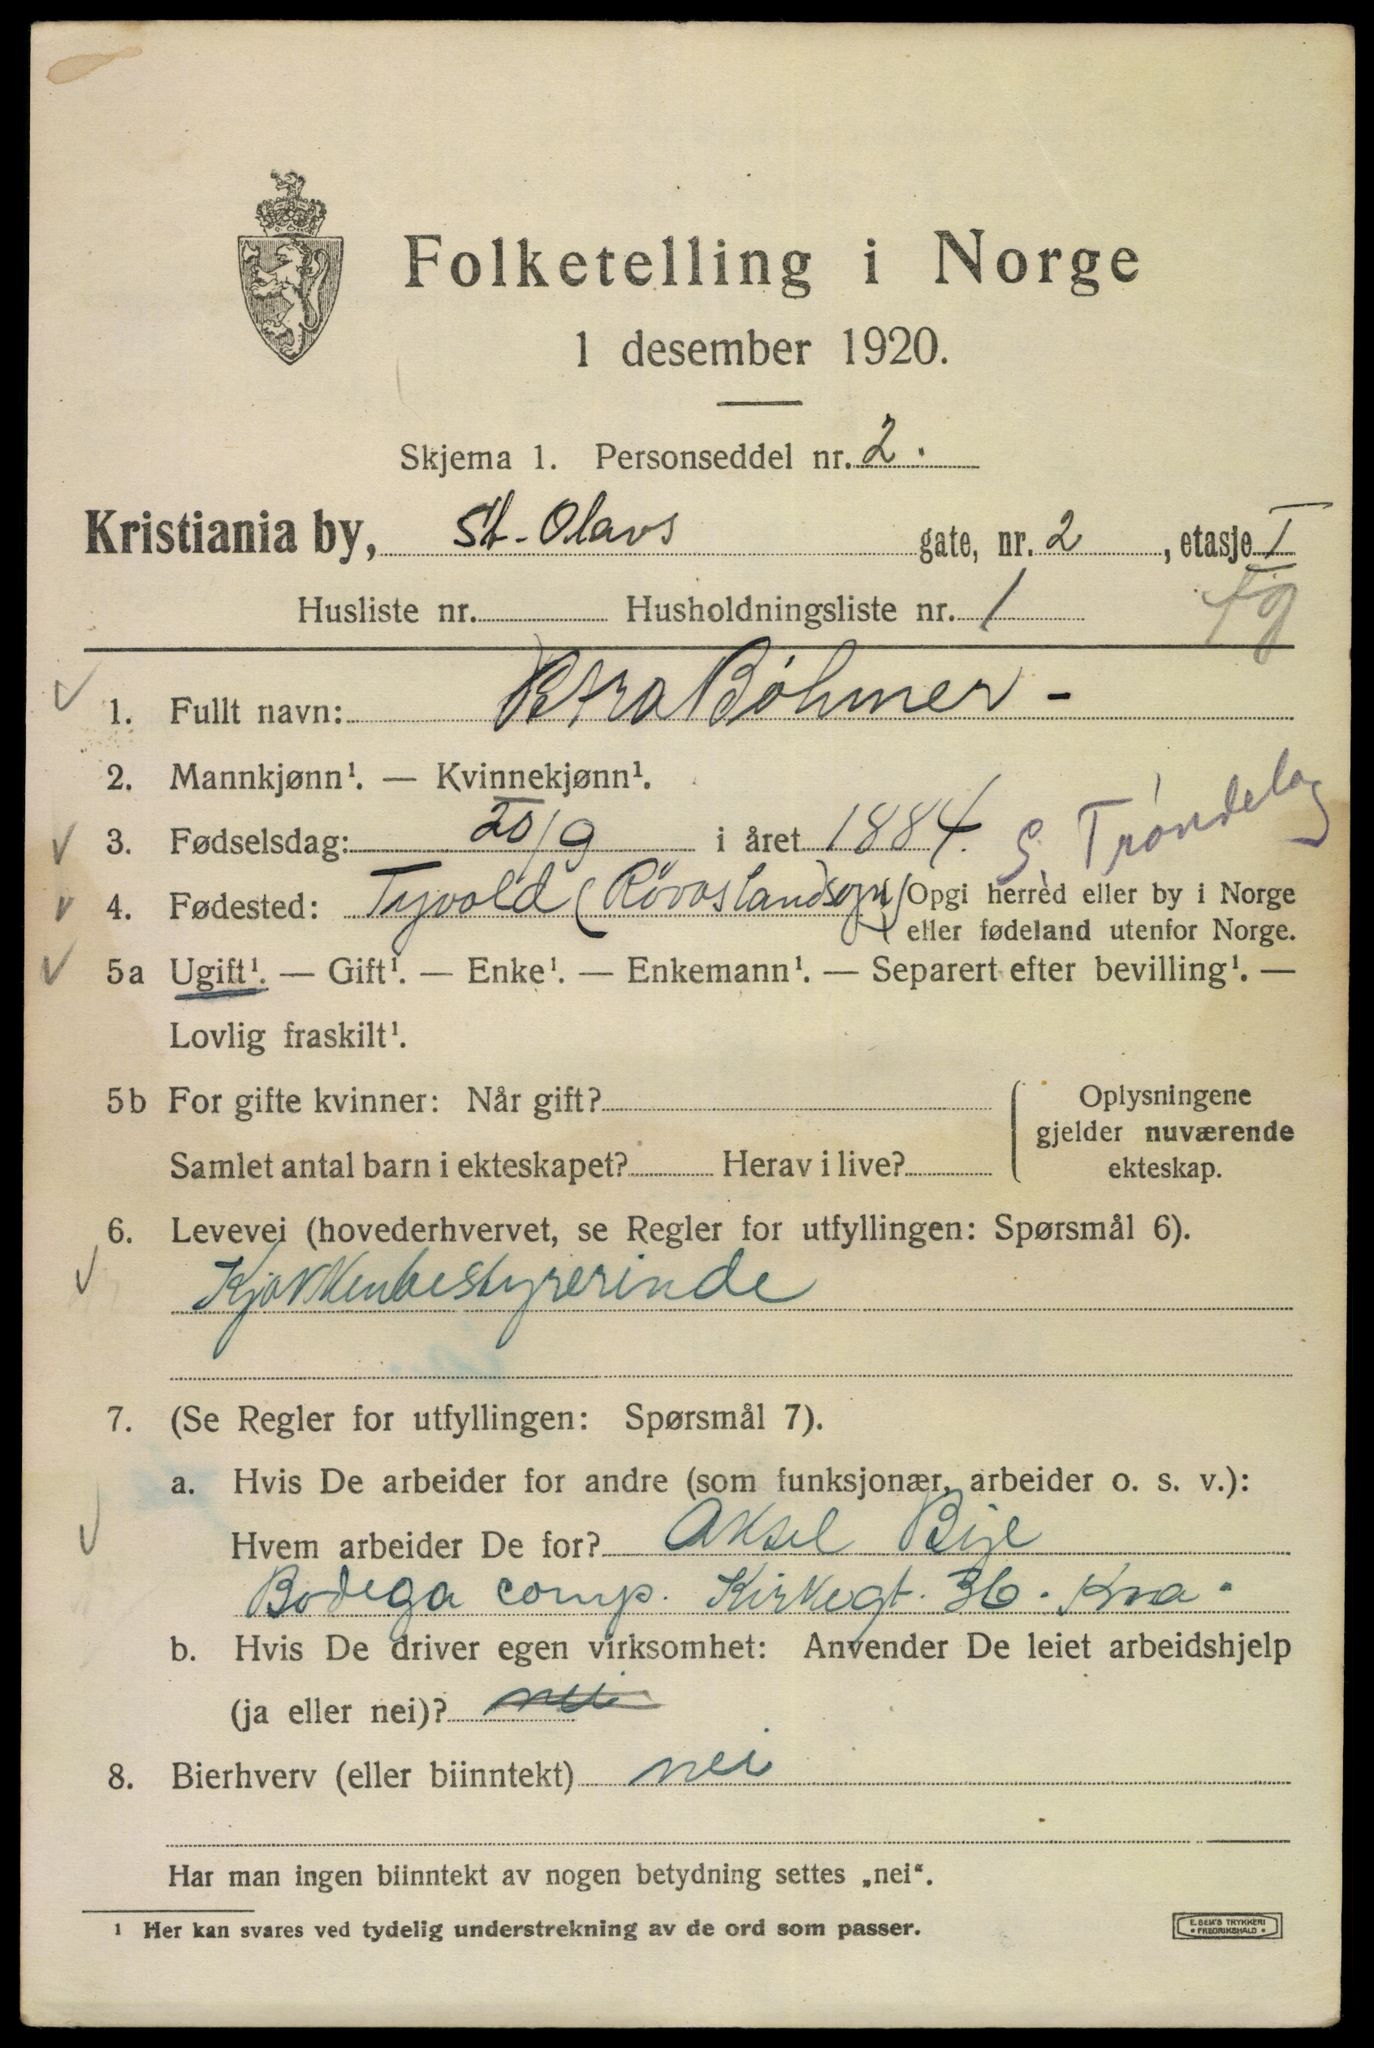 Folketelling i Norge
1 desember 1920.
Skjema 1. Personseddel nr. 2.
Kristiania by, St. Olavs gate, nr. 2, etasje I
Husliste nr. Husholdningsliste nr. 1
1. Fullt navn: Petra Bøhmer -
2. Mannkjønn¹. — Kvinnekjønn¹.
3. Fødselsdag: 20/9 i året 1884. S. Trøndelag
4. Fødested: Tyvold (Røros landsogn) Opgi herred eller by i Norge
eller fødeland utenfor Norge.
5a Ugift¹. — Gift¹. — Enke¹. — Enkemann¹. — Separert efter bevilling¹. —
Lovlig fraskilt¹.
5b For gifte kvinner: Når gift? Oplysningene
gjelder nuværende
Samlet antal barn i ekteskapet? Herav i live? ekteskap.
6. Levevei (hovederhvervet, se Regler for utfyllingen: Spørsmål 6).
Kjøkkenbestyrerinde
7. (Se Regler for utfyllingen: Spørsmål 7).
a. Hvis De arbeider for andre (som funksjonær, arbeider o. s. v.):
Hvem arbeider De for? Aksel Bije
Bodega comp. Kirkegt. 36. Kra.
b. Hvis De driver egen virksomhet: Anvender De leiet arbeidshjelp
(ja eller nei)? nei
8. Bierhverv (eller biinntekt) nei
Har man ingen biinntekt av nogen betydning settes „nei“.
¹ Her kan svares ved tydelig understrekning av de ord som passer.
E. SEM'S TRYKKERI
• FREDRIKSHALD •